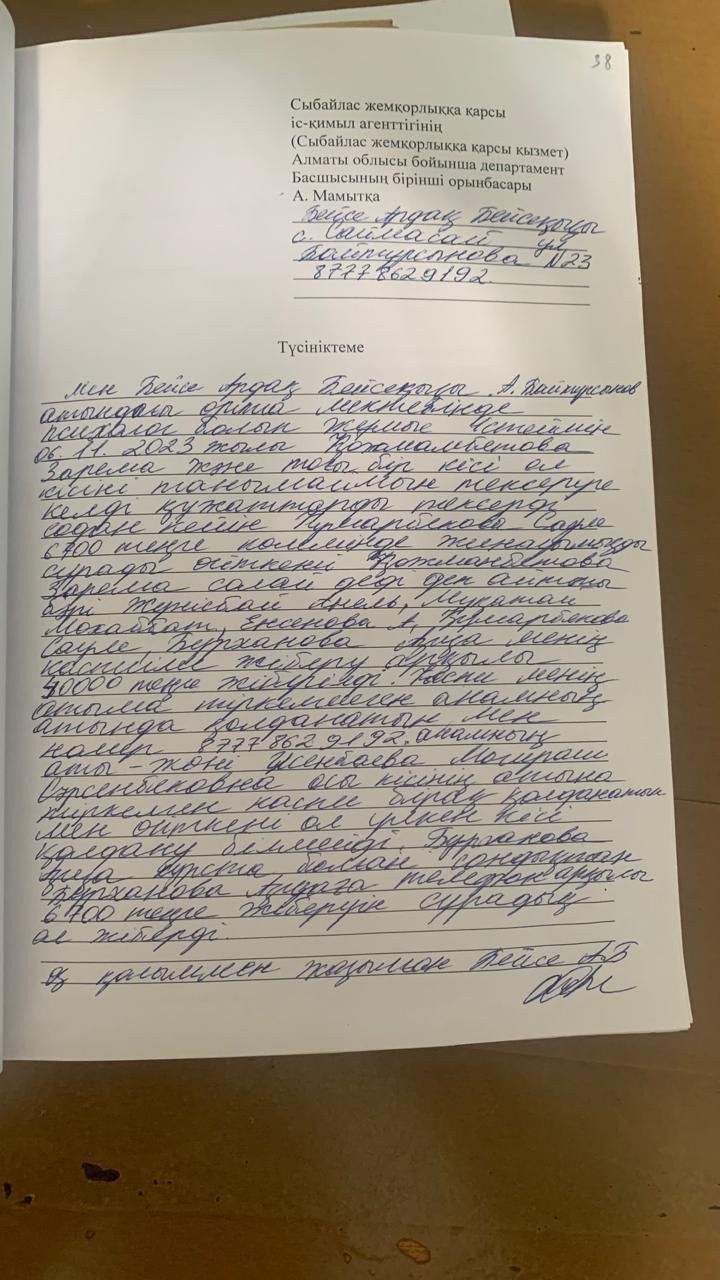 38
Сыбайлас жемқорлыққа қарсы
іс-қимыл агенттігінің
(Сыбайлас жемқорлыққа қарсы қызмет)
Алматы облысы бойынша департамент
Басшысының бірінші орынбасары
А. Мамытқа
Бейсе Ардақ Бейсеқызы
с. Саймасай ул
Байтурсынова N23
87778629192.
Түсініктеме
Мен Бейсе Ардақ Бейсеқызы А. Байтурсынов
атындағы орта мектебінде
психолог болып жұмыс істеймін
06.11.2023 жылы Қожмамбетова
Зарема және тағы бір кісі ол
кісіні танымаймын тексеруге
келді құжаттарды тексерді
содан кейін Сауле
6700 теңге көлемінде жинауымызды
сұрады өйткені Қожманбетова
Зарема солай деді деп айтты
бәрі Жүнісбай Мукатай
Махаббат, Енсенова А,
Сауле, Бурханова менің
каспииме жіберу арқылы
40000 теңге жіберілді Каспи менің
атыма тіркелмеген анамның
атында қолданатын мен
номер 87778629192. анамның
аты-жөні
осы кісінің атына
тіркелген каспи бірақ қолданатын
мен өйткені ол үлкен кісі
қолдану білмейді.
курста болған сондықтан
Бурханова телефон арқылы
6700 теңге жіберуін сұрадық
ол жіберді.
Өз қолыммен жазылған Бейсе А.Б